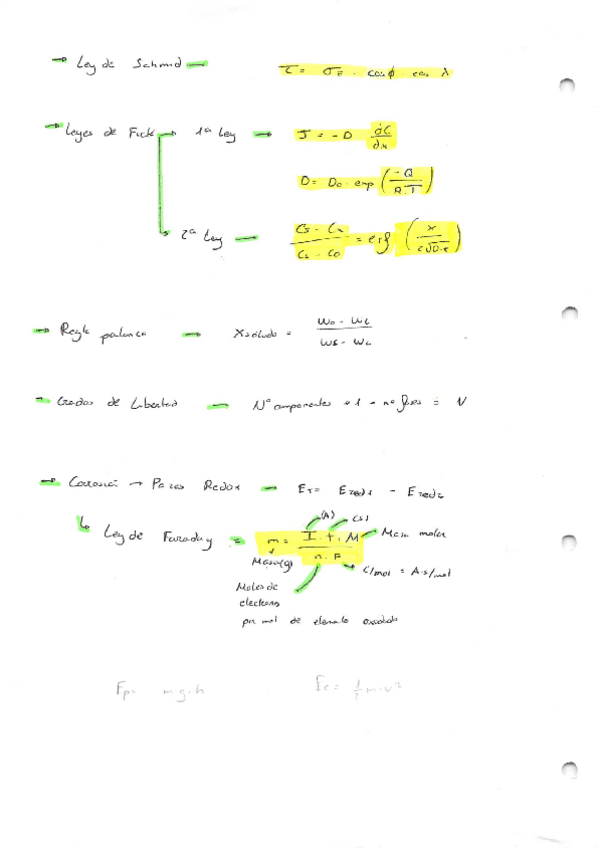 → Ley de Schmid — τ = σz · cos ϕ · cos λ
→ Leyes de Fick → 1ª Ley → J = -D dC/dx
D = D₀ · exp (-Q / R·T)
→ 2ª Ley — Cs - Cx / Cs - C₀ = erf (x / 2√D·t)
→ Regla palanca → Xsólido = W₀ - WL / WS - WL
- Grados de Libertad — Nº componentes + 1 - nº fases = N
→ Corrosión → Pares Redox — ET = Ered1 - Ered2
↳ Ley de Faraday = m = I · t · M / n · F
(A) (s) Masa molar
Masa(g) C/mol = A·s/mol
Moles de
electrones
por mol de elemento oxidado
Ep = m·g·h Ec = 1/2 m·v²